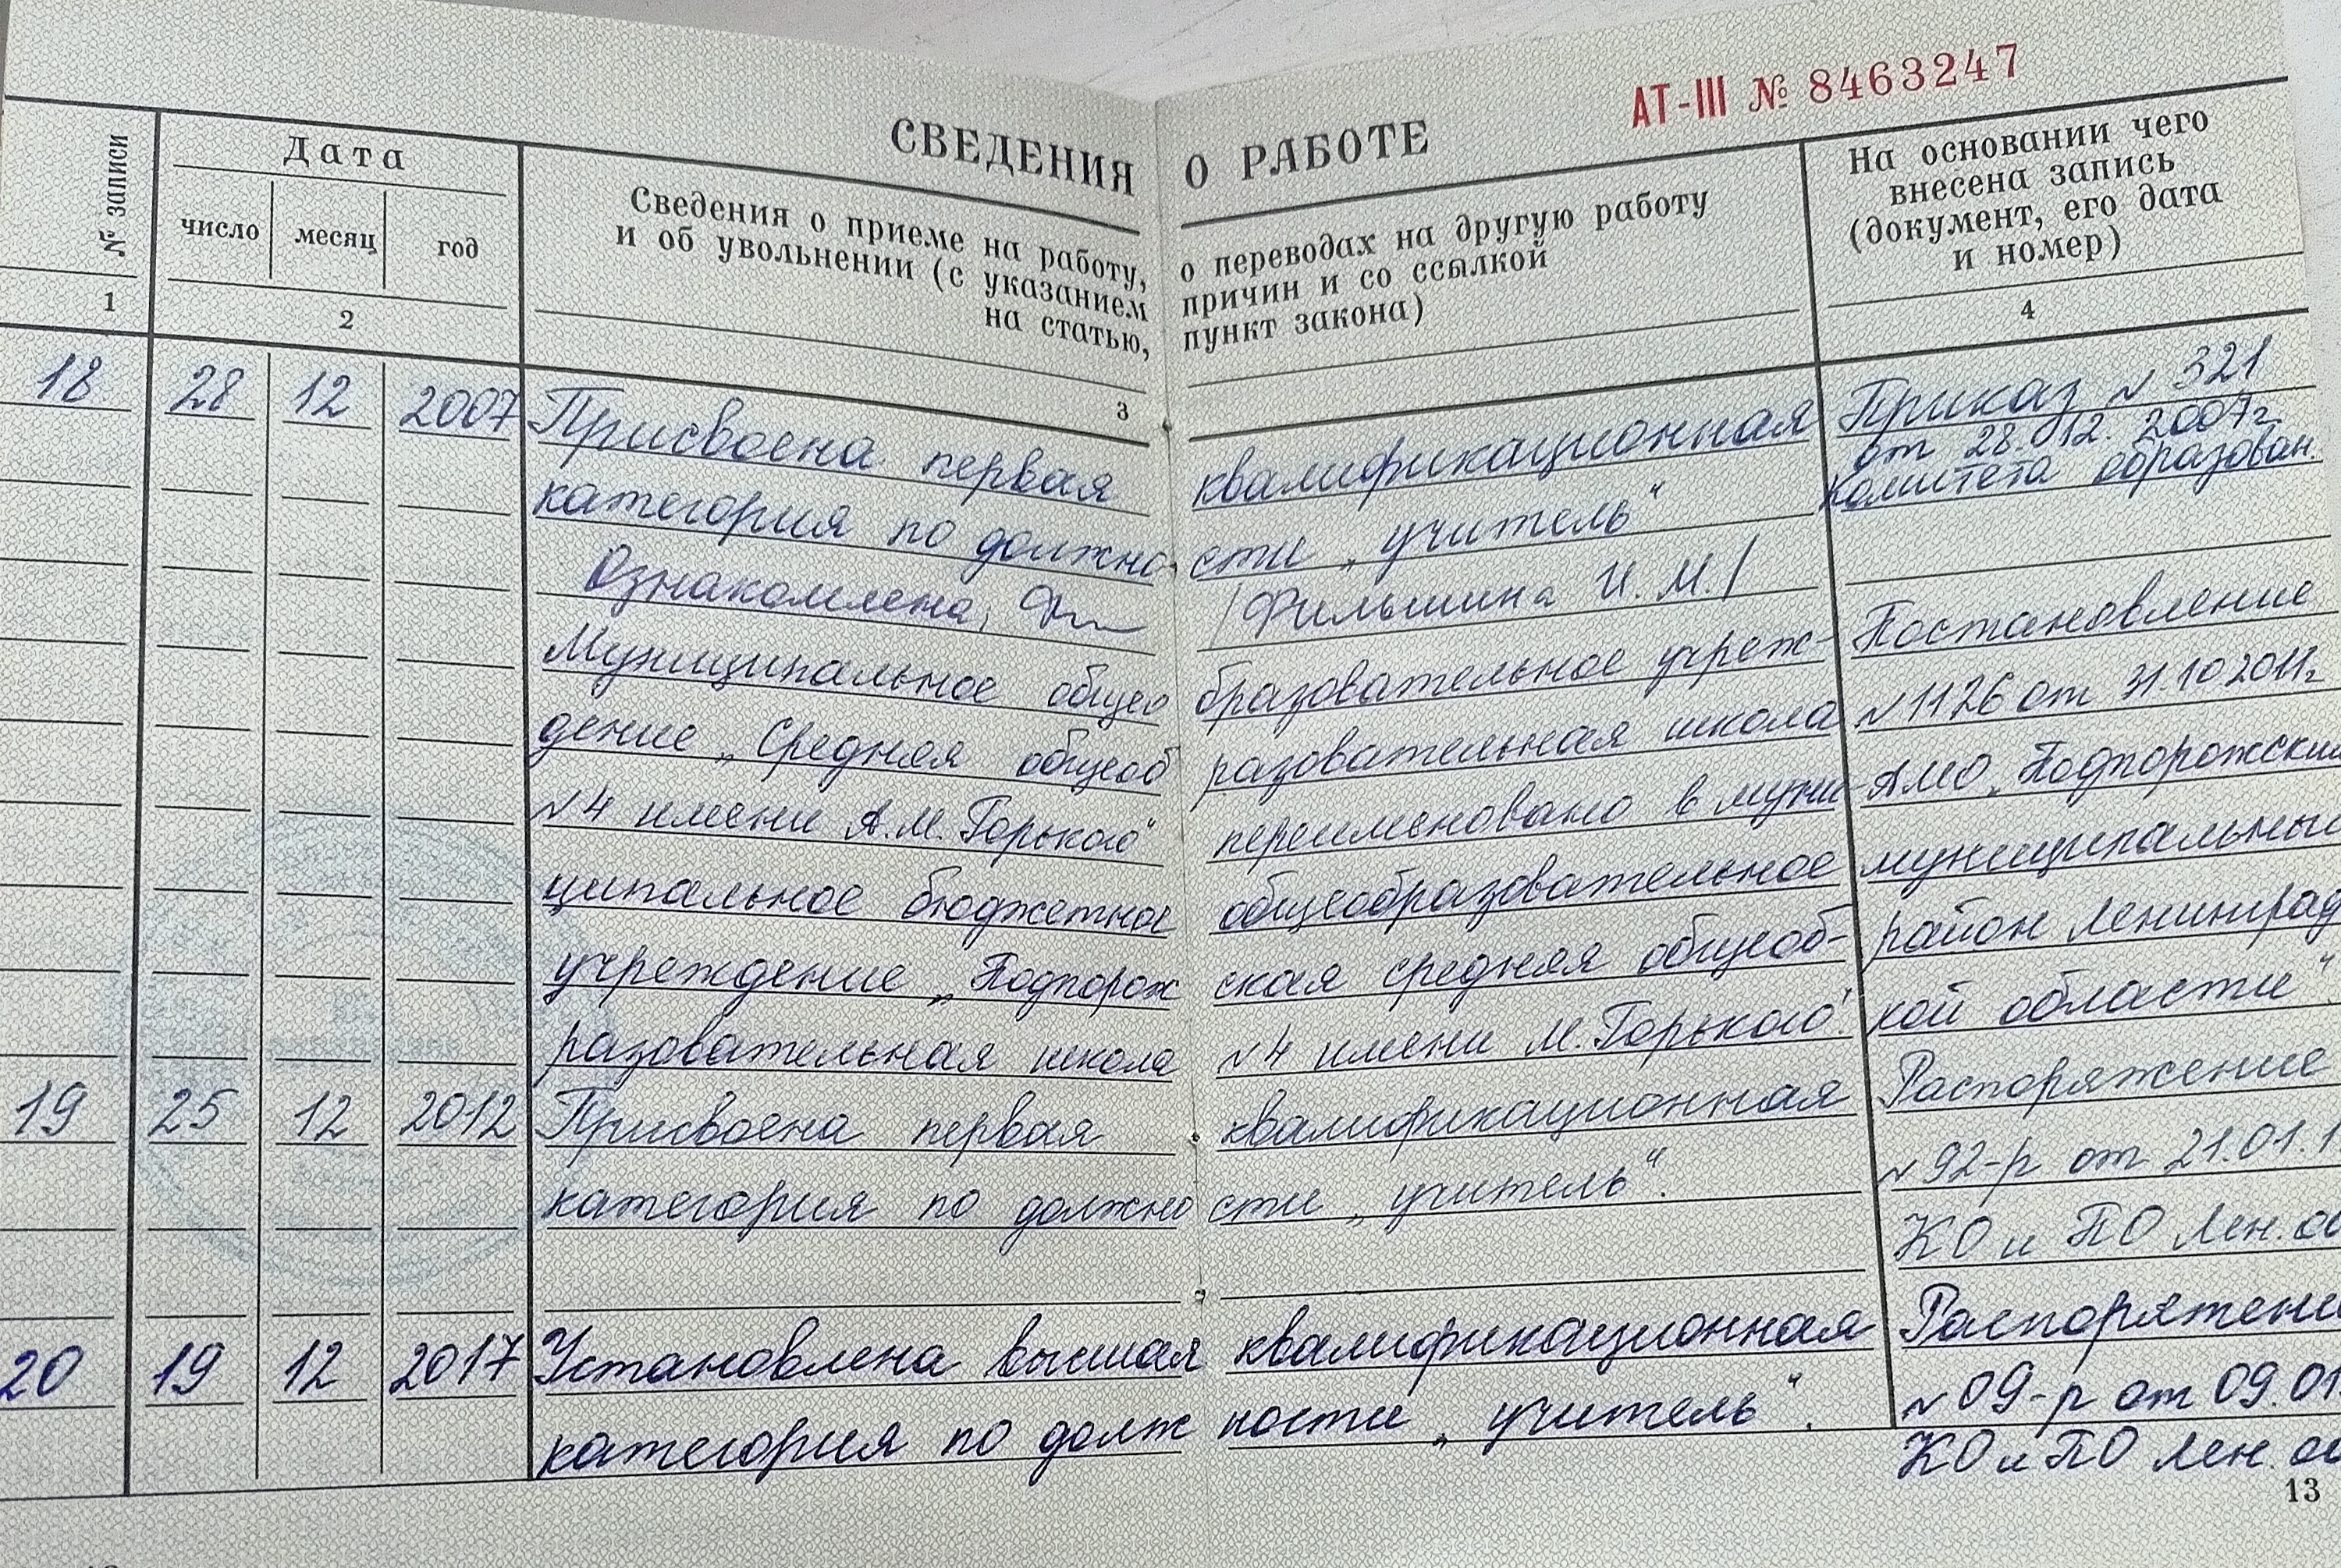 СВЕДЕНИЯ О РАБОТЕ
АТ-III № 8463247
№ записи
Дата
число месяц год
Сведения о приеме на работу, о переводах на другую работу
и об увольнении (с указанием причин и со ссылкой
на статью, пункт закона)
На основании чего
внесена запись
(документ, его дата
и номер)
1 2 3 4
18 28 12 2007 Присвоена первая квалификационная Приказ № 321
от 28.12.2007г
категория по должно сти „учитель“ Комитета образован.
Ознакомлена, /Фильшина И.М./
Муниципальное общео бразовательное учреж- Постановление
дение „Средняя общеоб разовательная школа №1126 от 31.10 2011г.
№4 имени А.М.Горького“ переименовано в муни- АМО „Подпорожский
ципальное бюджетное общеобразовательное муниципальный
учреждение „Подпорож ская средняя общеоб- район Ленинград
разовательная школа №4 имени М.Горького“. кой области“.
19 25 12 2012 Присвоена первая квалификационная Распоряжение
категория по должно сти „учитель“. №92-р от 21.01.1
КО и ПО Лен. об
20 19 12 2017 Установлена высшая квалификационная Распоряжени
категория по долж ности „учитель“. №09-р от 09.01.
КО и ПО Лен. об
13